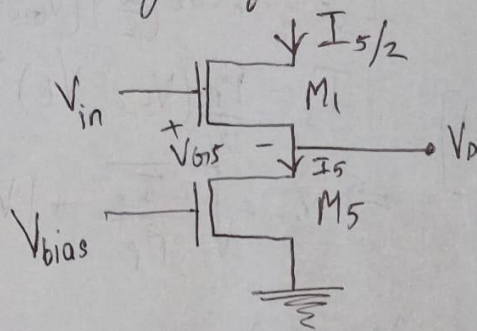 I5/2
Vin
M1
+
VGS
-
I5
VD
M5
Vbias